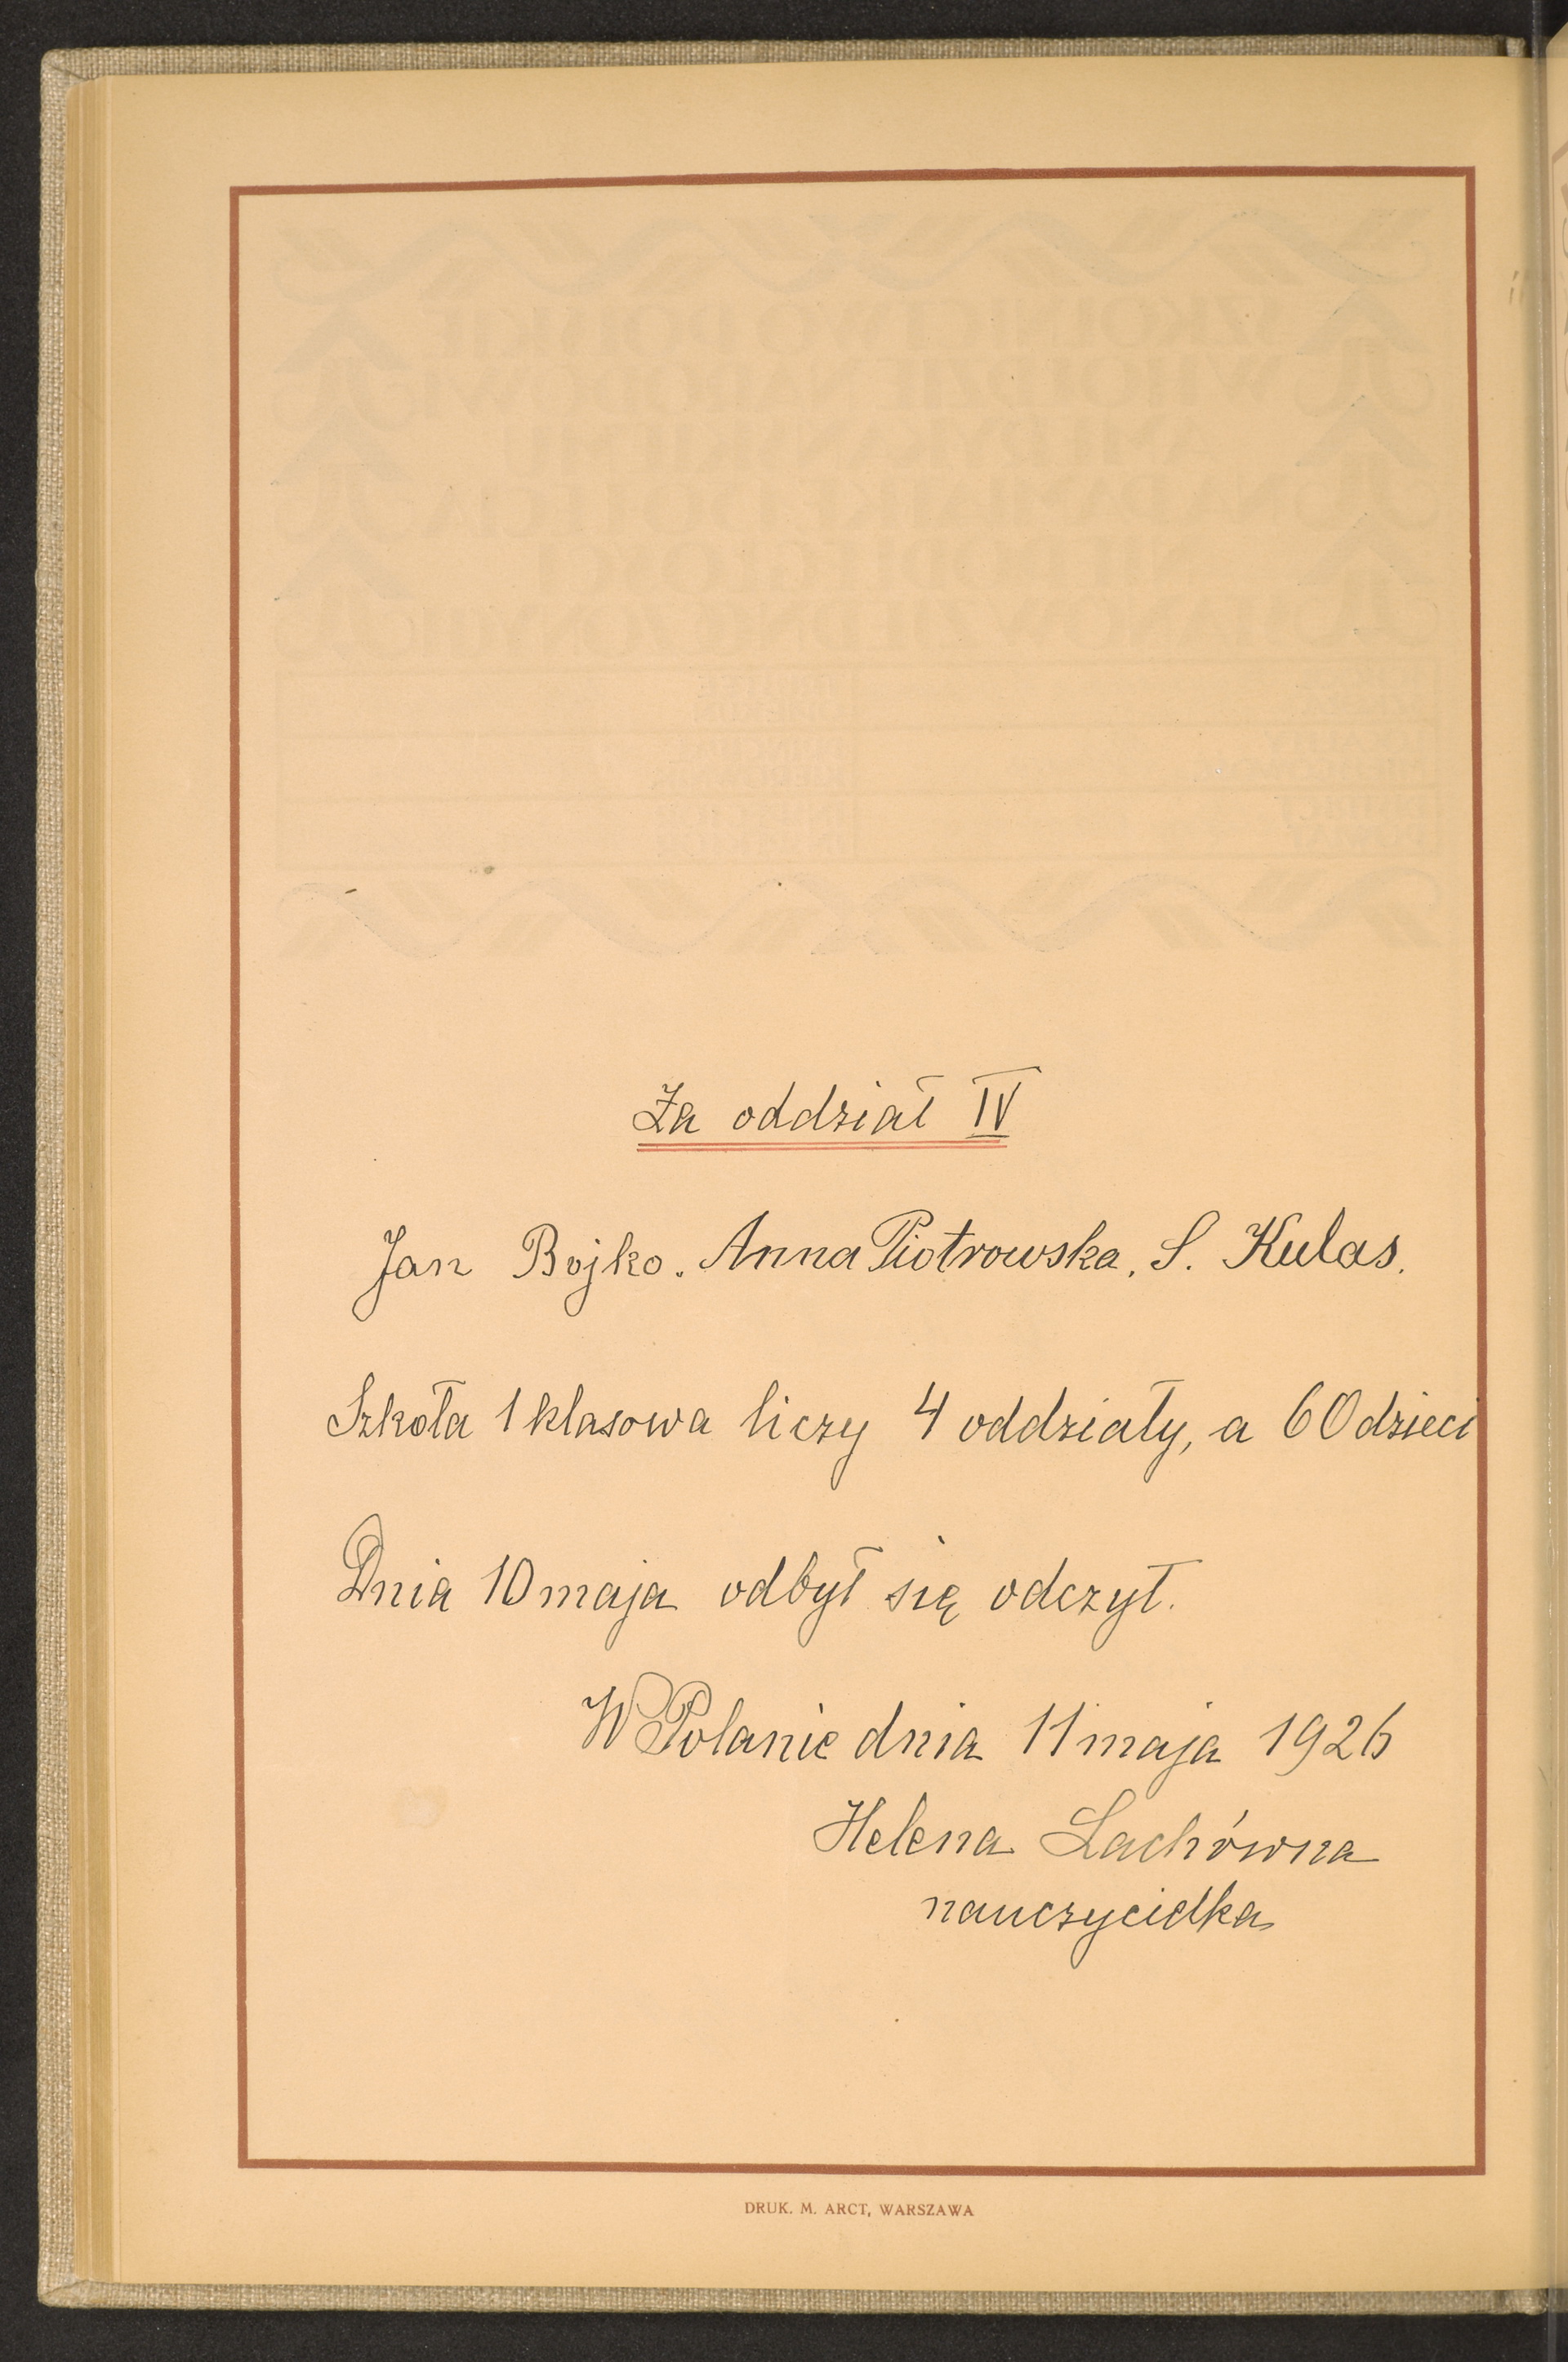 Za oddział IV
Jan Bojko. Anna Piotrowska. S. Kulas.
Szkoła 1 klasowa liczy 4 oddziały, a 60 dzieci
Dnia 10 maja odbył się odczyt.
W Polanie dnia 11 maja 1926
Helena Lachówna
nauczycielka
DRUK. M. ARCT, WARSZAWA